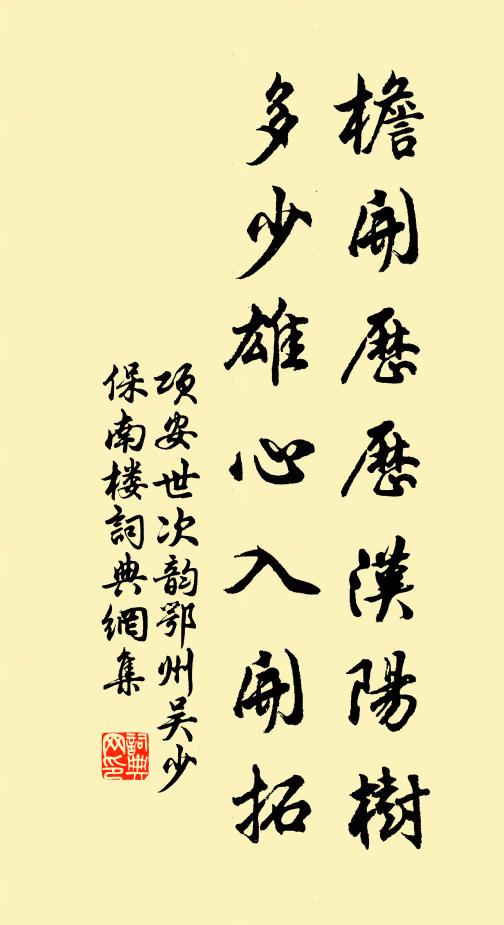 檐開歷歷漢陽樹
多少雄心入開拓
項安世次韵鄂州吴少
保南楼詞典網集
詞典
网印